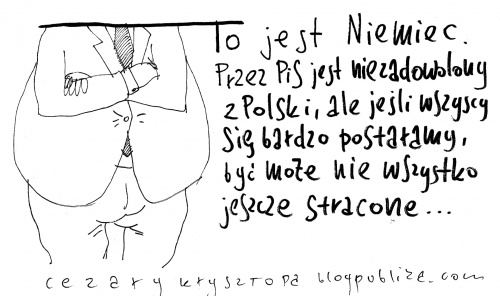 To jest Niemiec.
Przez PiS jest niezadowolony
z Polski, ale jeśli wszyscy
się bardzo postaramy,
być może nie wszystko
jeszcze stracone...
cezary krysztopa blogpublika.com